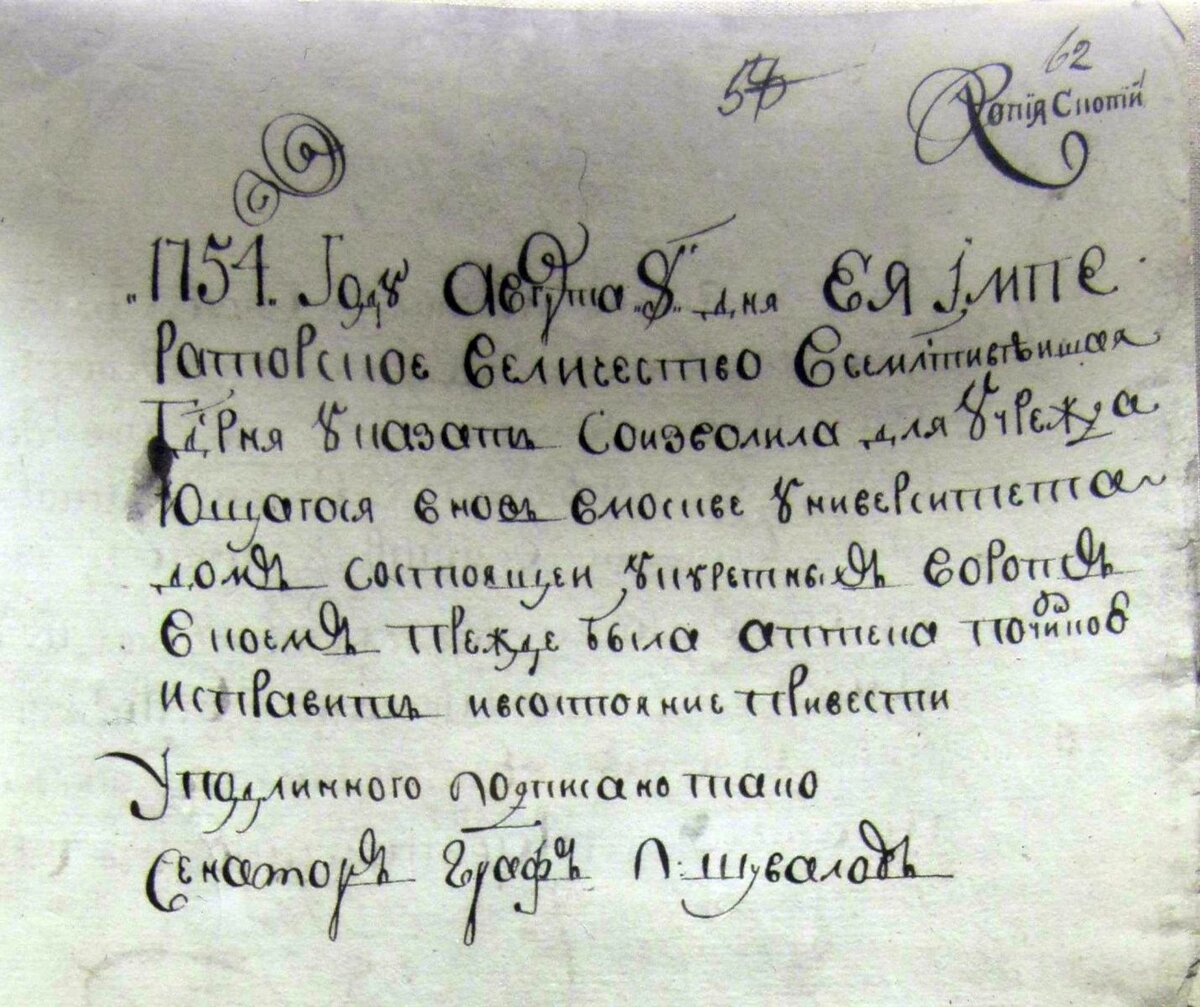 62
57
Копія Скопій
„1754„ Году Августа „8„ дня ЕЯ Імпе
раторское величество Всемлтивѣишая
Гдрня указать Соизволила для учрежда
ющагося вновь вмоскве университета
домъ состоящеи укуретныхъ воротъ
вкоемъ прежде была аптека почінкою
исправить ивсостояние привести
Уподлинного подписано тако
Сенаторъ Графъ П: Шуваловъ